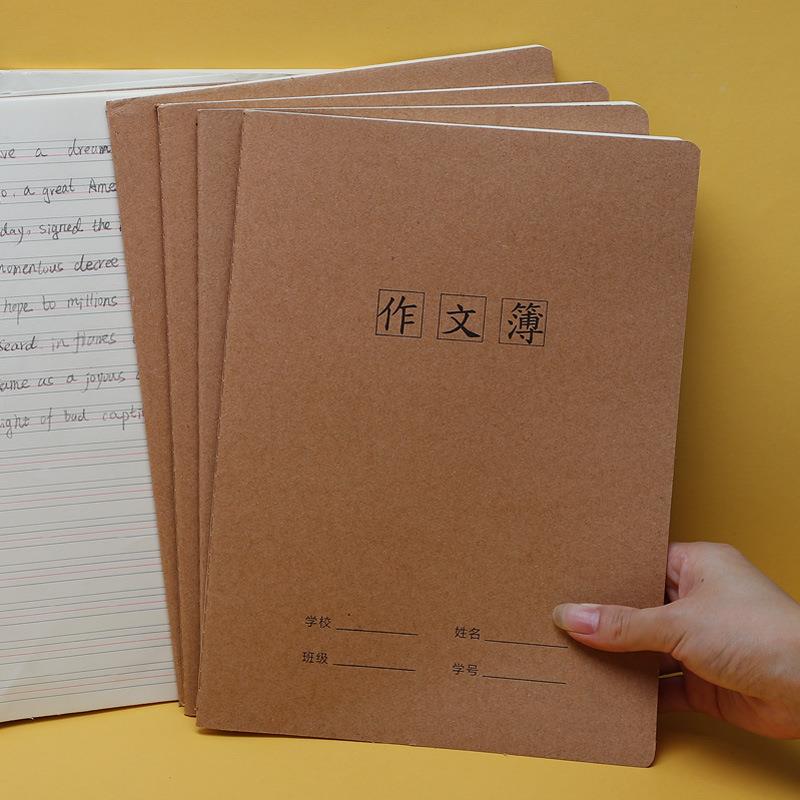 ve a dream
o, a great Ame
day, signed the
momentous decree
hope to millions
seard in flames
ame as a joyous
ight of bad capti
作文簿
学校
姓名
班级
学号